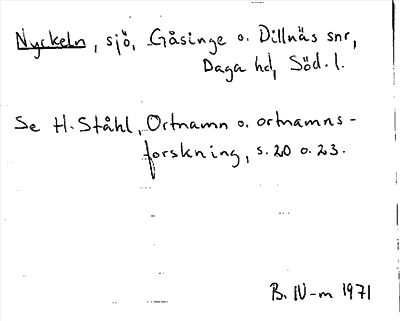 Nyckeln, sjö, Gåsinge o. Dillnäs snr,
Daga hd, Söd. l.
Se H. Ståhl, Ortnamn o. ortnamns-
forskning, s. 20 o. 23.
B. N-m 1971